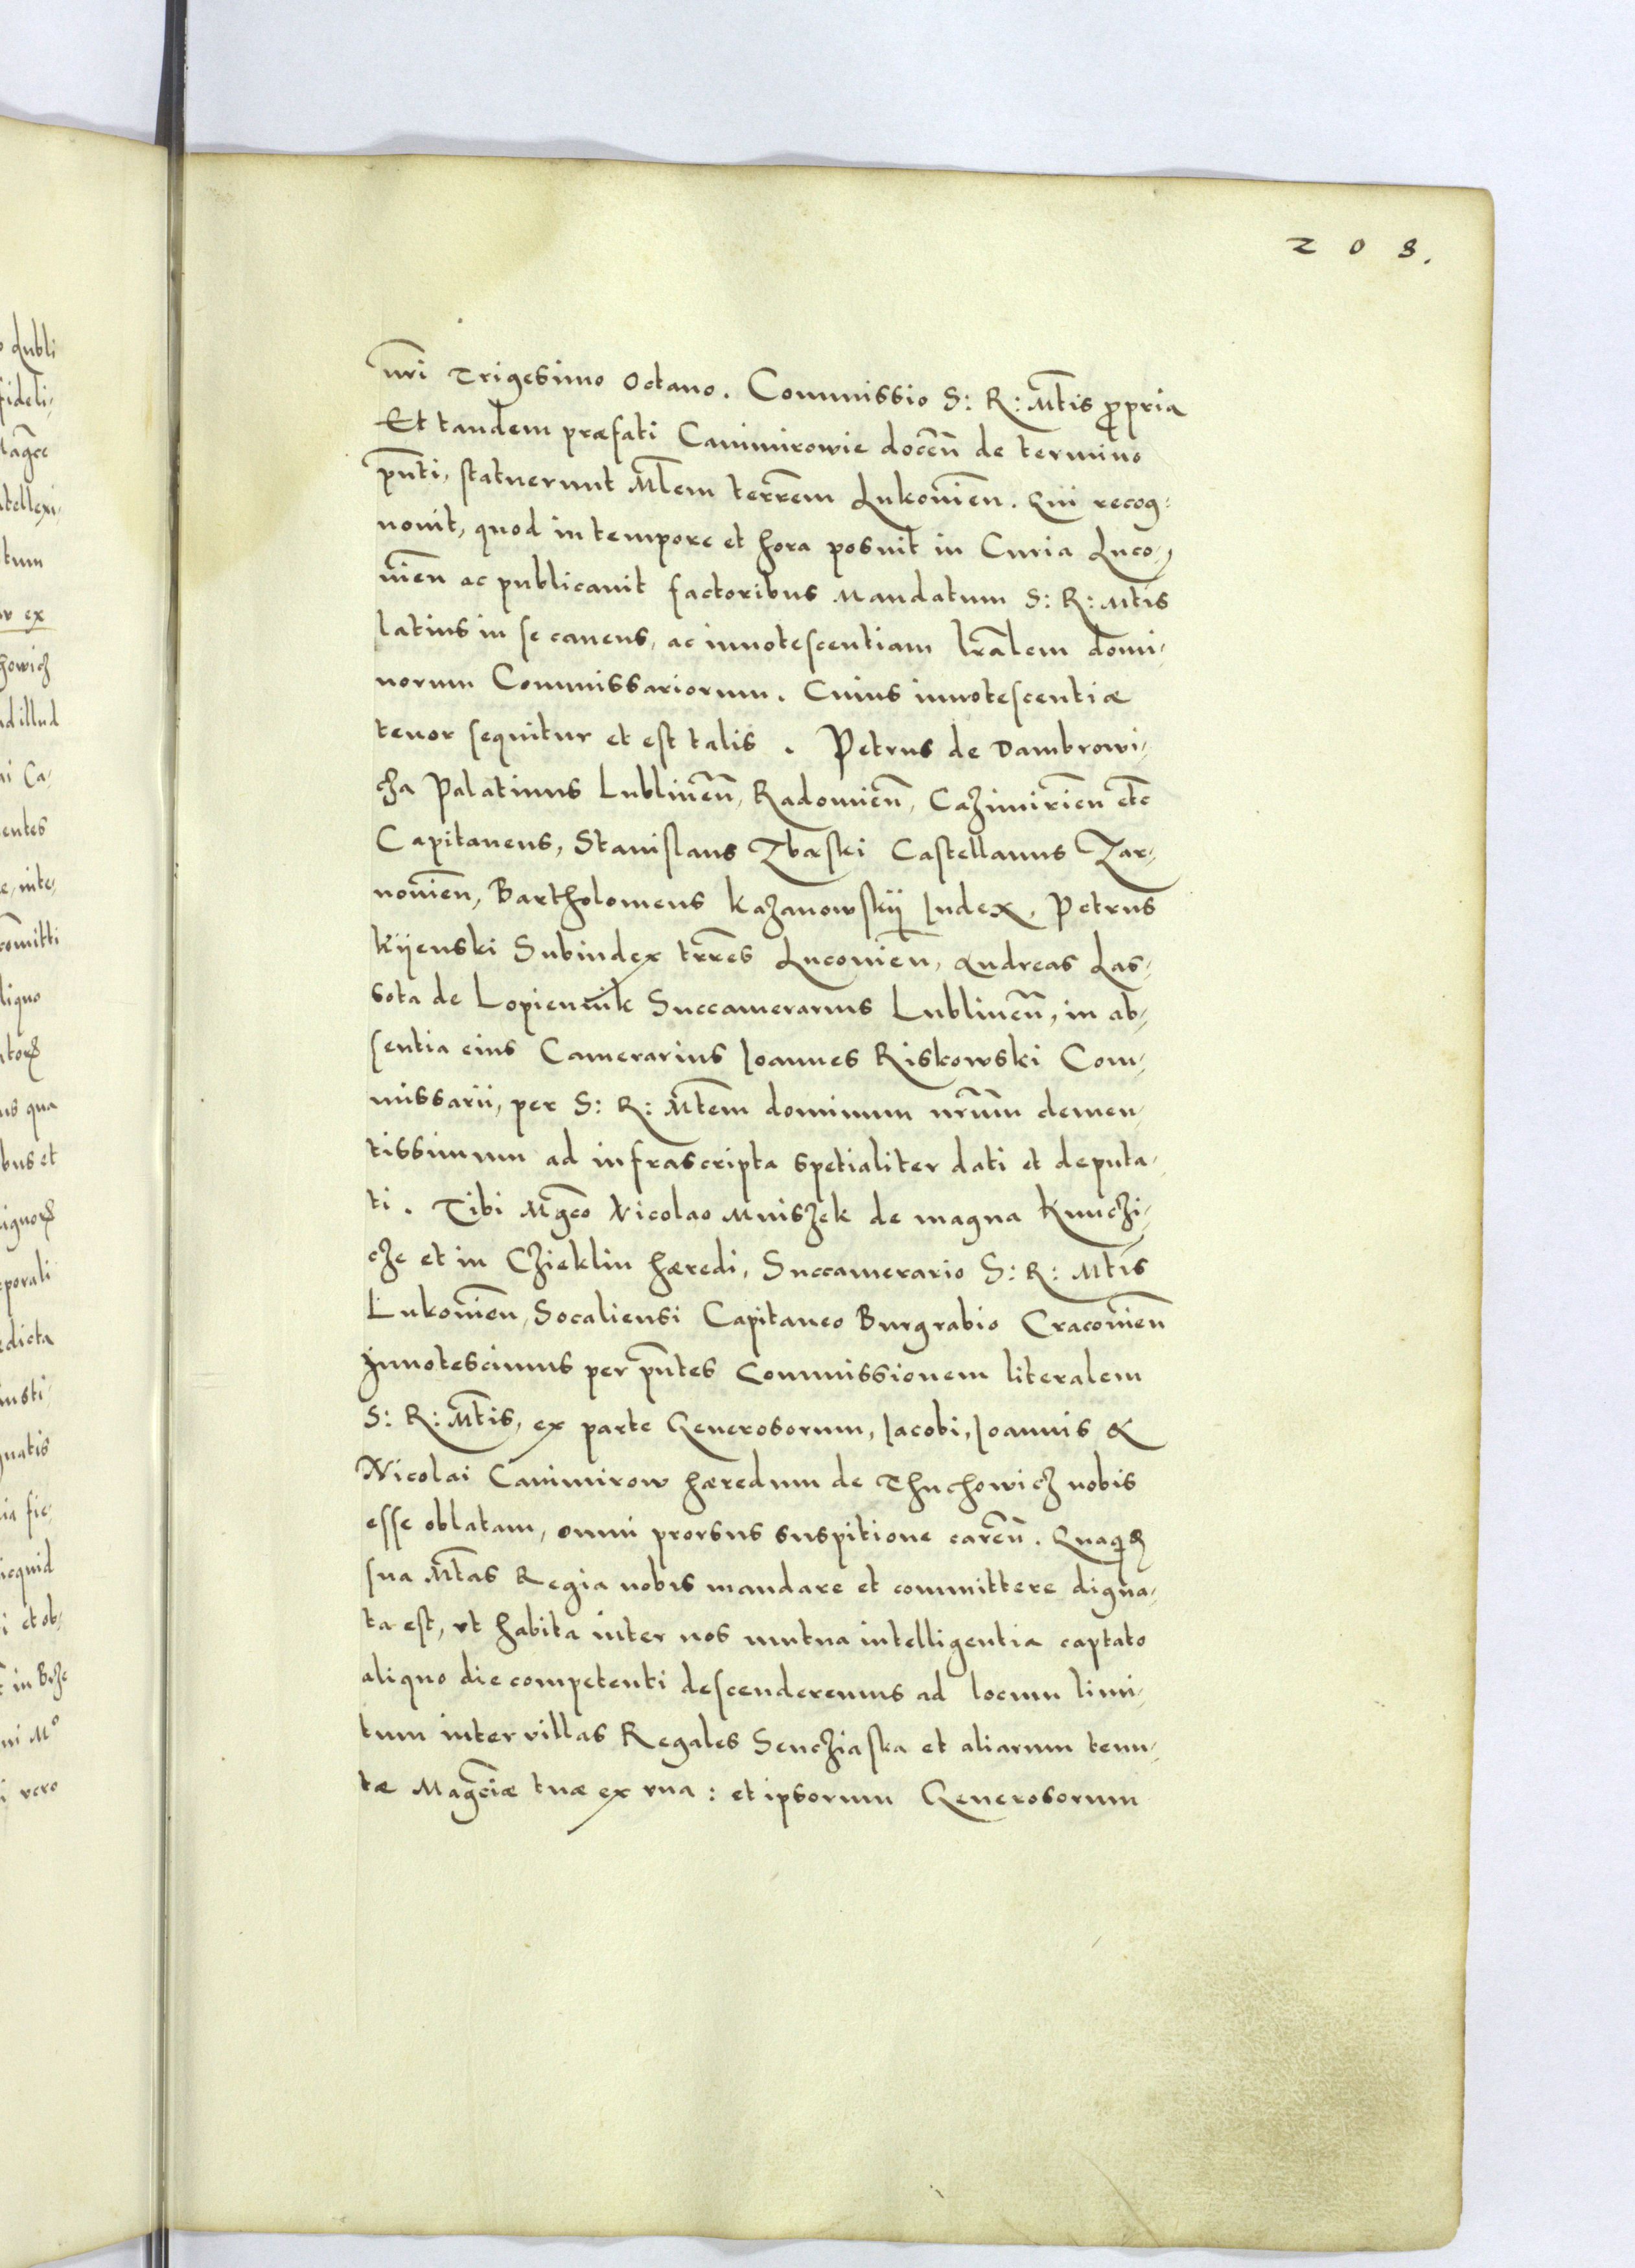 208.
nr̃i Trigesimo Octauo. Commissio S: R: Mt̃is propria
Et tandem præfati Canimirowie docen̄ de termino
pñti, statuerunt Mlem terrem Lukouien̄. Qui recog-
nouit, quod in tempore et hora posuit in Curia Luco-
uien̄ ac publicauit factoribus Mandatum S: R: Mt̃is
latius in se cauens, ac innotescentiam lr̃alem domi-
norum Commissariorum. Cuius innotescentiæ
tenor sequitur et est talis. Petrus de Dambrowi-
cza Palatinus Lublinen̄, Radomien̄, Cazimirien̄ etc
Capitaneus, Stanislaus Zbąski Castellanus Zar-
nouien̄, Bartholomeus Kazanowskij Iudex, Petrus
Kijenski Subiudex tr̃res Lucouien̄, Andreas Las-
sota de Lopiennik Succamerarius Lublinen̄, in ab-
sentia eius Camerarius Ioannes Riskowski Com-
missarii, per S: R: Mt̃em dominum nr̃um clemen-
tissimum ad infrascripta spetialiter dati et deputa-
ti. Tibi Mgco Nicolao Mniszek de magna Kunczi-
cze et in Czieklin hæredi, Succamerario S: R: Mt̃is
Lukouien̄, Socaliensi Capitaneo Burgrabio Cracouien̄
Innotescimus per pñtes Commissionem literalem
S: R: Mt̃is, ex parte Generosorum, Iacobi, Ioannis &
Nicolai Canimirow hæredum de Thuchowicz nobis
esse oblatam, omni prorsus suspitione caren̄. Quaquidem
sua Mt̃as Regia nobis mandare et committere digna-
ta est, vt habita inter nos mutua intelligentia captato
aliquo die competenti descenderemus ad locum limi-
tum inter villas Regales Sencziaska et aliarum tenu-
tæ Magciæ tuæ ex vna: et ipsorum Generosorum